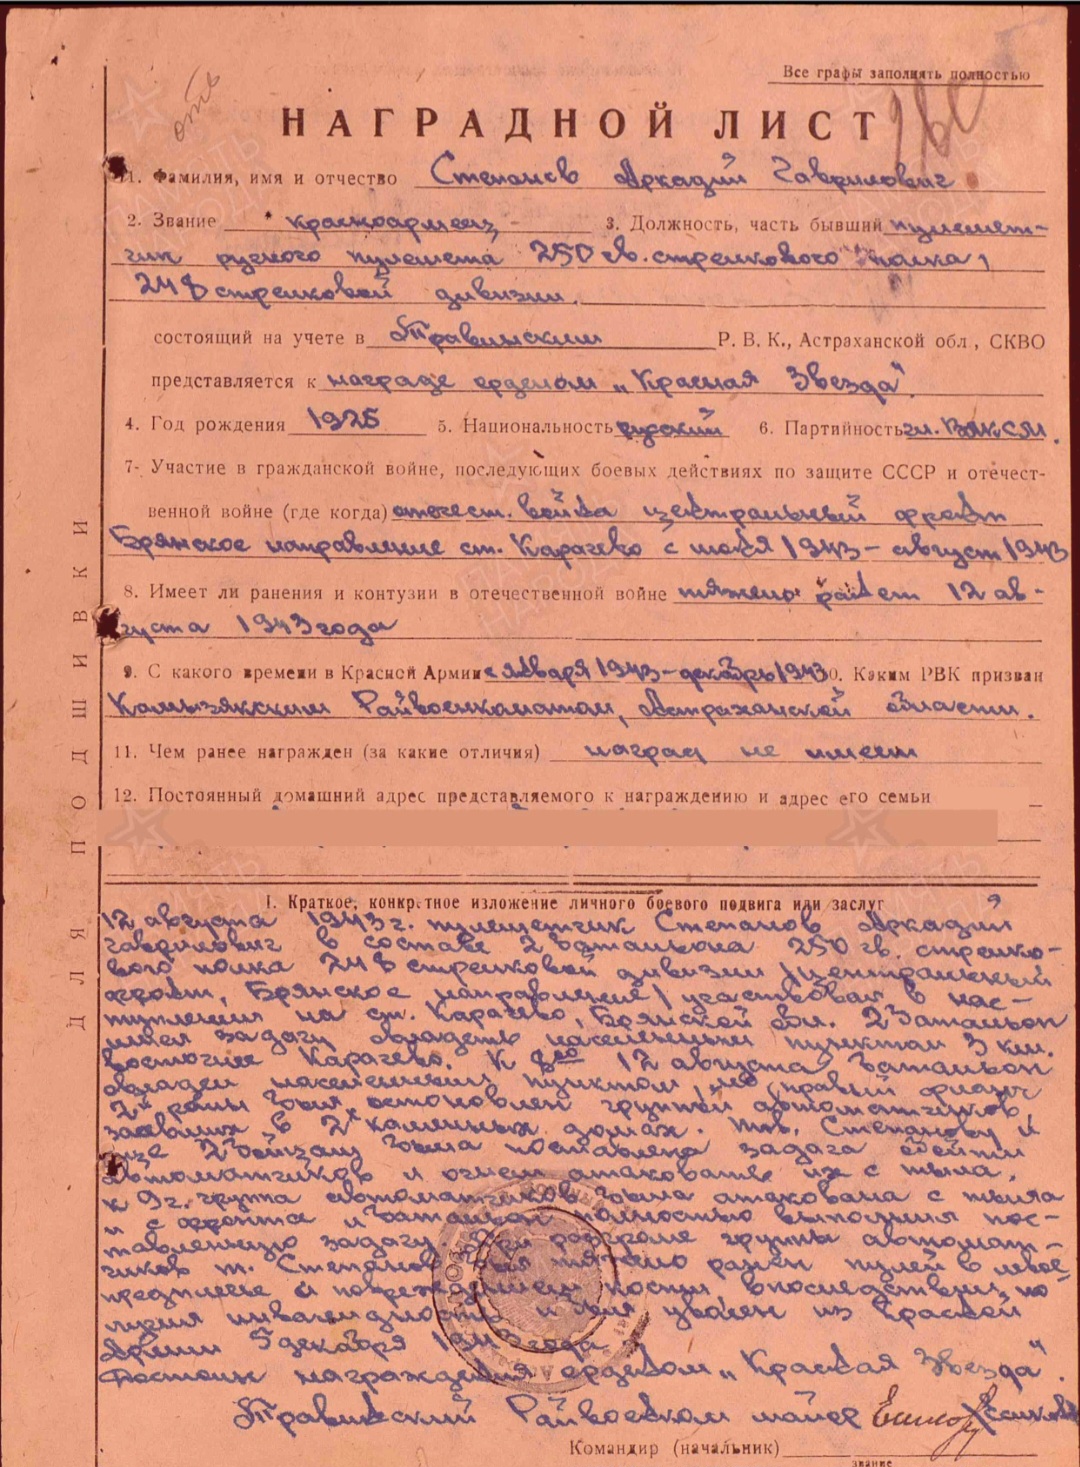 Все графы заполнять полностью
отв
НАГРАДНОЙ ЛИСТ
1. Фамилия, имя и отчество Степанов Аркадий Гаврилович
2. Звание красноармеец 3. Должность, часть бывший пулемет-
чик ручного пулемета 250 гв. стрелкового полка,
248 стрелковой дивизии.
состоящий на учете в Травинским Р. В. К., Астраханской обл., СКВО
представляется к награде орденом „Красная Звезда"
4. Год рождения 1925 5. Национальность русский 6. Партийность чл. ВЛКСМ.
7. Участие в гражданской войне, последующих боевых действиях по защите СССР и отечест-
венной войне (где когда) отечест. война центральный фронт
Брянское направление ст. Карачево с июля 1943 – август 1943
8. Имеет ли ранения и контузии в отечественной войне тяжело ранен 12 ав-
густа 1943 года
9. С какого времени в Красной Армии с января 1943 – декабрь 1943 10. Каким РВК призван
Камызякским Райвоенкоматом, Астраханской области.
11. Чем ранее награжден (за какие отличия) наград не имеет
12. Постоянный домашний адрес представляемого к награждению и адрес его семьи
ДЛЯ ПОДШИВКИ
I. Краткое, конкретное изложение личного боевого подвига или заслуг
12 августа 1943 г. пулеметчик Степанов Аркадий
Гаврилович в составе 2 батальона 250 гв. стрелко-
вого полка 248 стрелковой дивизии /центральный
фронт, Брянское направление/ участвовал в нас-
туплении на ст. Карачево, Брянской обл. 2 батальон
имел задачу овладеть населенным пунктом 3 км.
восточнее Карачево. К 8 00 12 августа батальон
овладел населенным пунктом, но правый фланг
2й роты был остановлен группой автоматчиков,
засевших в 2х каменных домах. Тов. Степанову и
еще 2 бойцам была поставлена задача обойти
автоматчиков и огнем атаковать их с тыла.
К 9 ч. группа автоматчиков была атакована с тыла
и с фронта и батальон полностью выполнил пос-
тавленную задачу. При разгроме группы автомат-
чиков т. Степанов был тяжело ранен пулей в левое
предплечье с повреждением кости, впоследствии по-
лучил инвалидность и был уволен из Красной
Армии 5 декабря 1943 года.
Достоин награждения орденом „Красная Звезда".
Травинский Райвоенком майор
Командир (начальник)
звание
ПАМЯТЬ НАРОДА